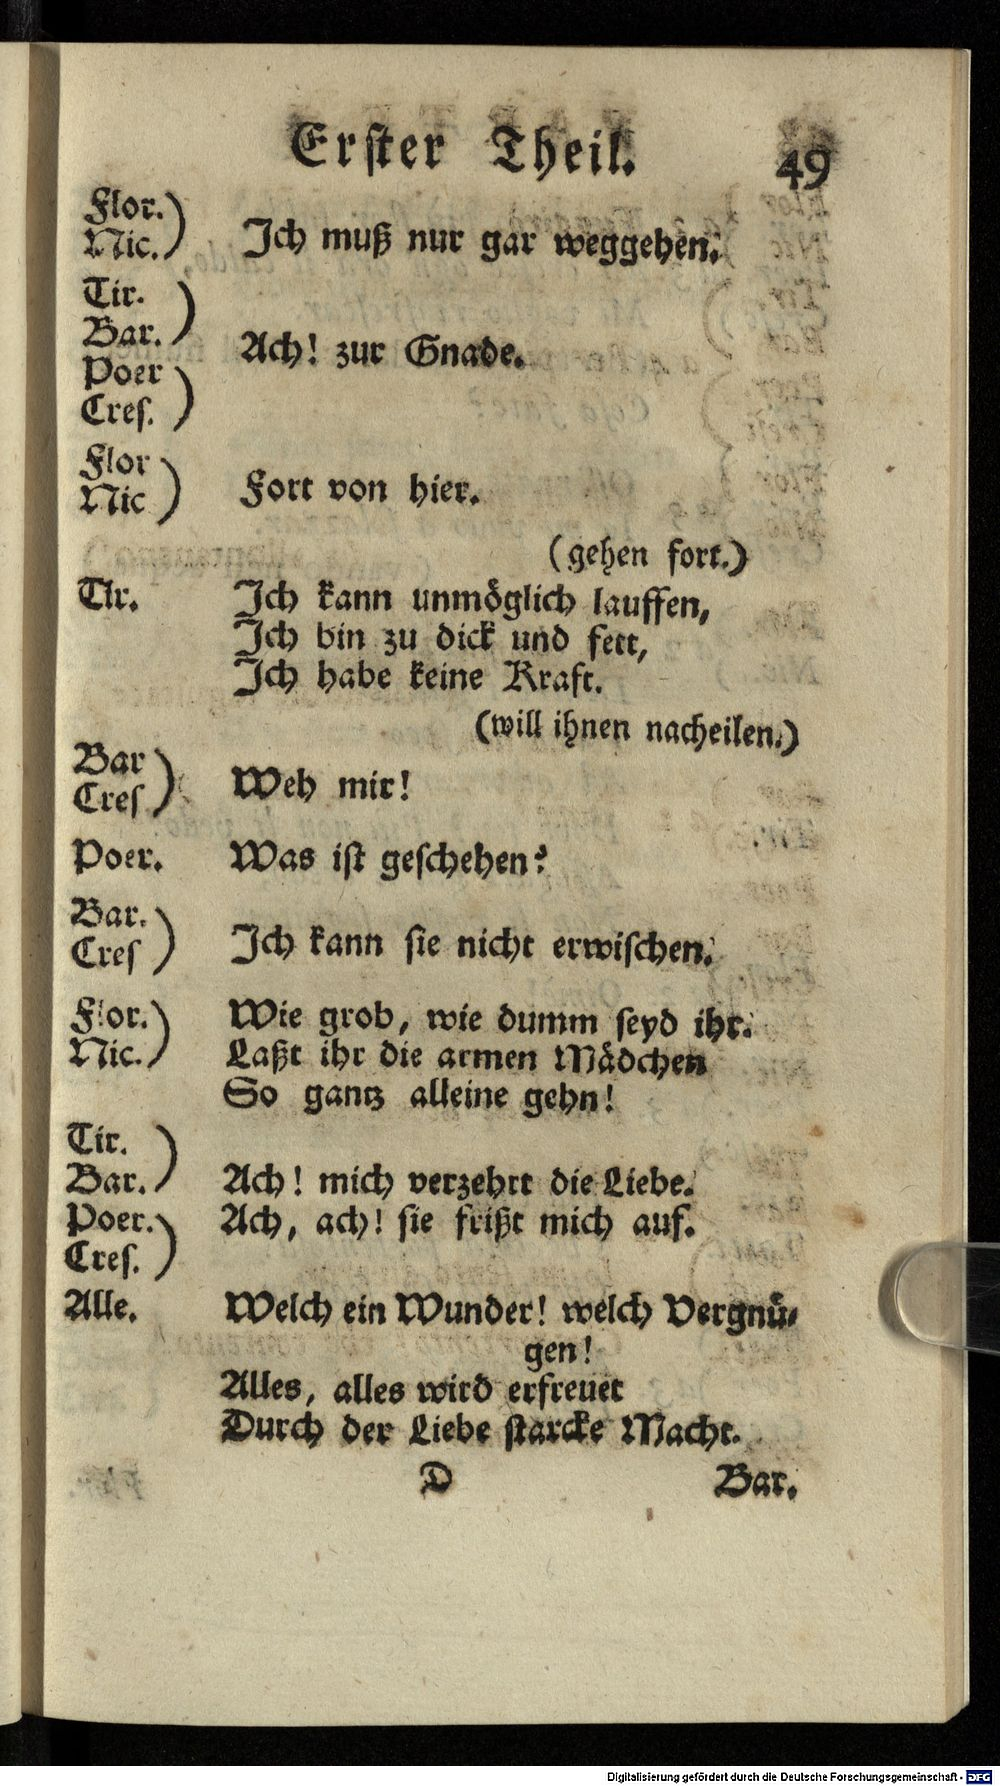 Erster Theil. 49
Flor.)
Nic.) Ich muß nur gar weggehen.
Tir. )
Bar. ) Ach! zur Gnade.
Poer )
Cres. )
Flor )
Nic ) Fort von hier.
(gehen fort.)
TIr. Ich kann unmöglich lauffen,
Ich bin zu dick und fett,
Ich habe keine Kraft.
(will ihnen nacheilen.)
Bar )
Cres ) Weh mir!
Poer. Was ist geschehen?
Bar. )
Cres ) Ich kann sie nicht erwischen.
Flor.) Wie grob, wie dumm seyd ihr.
Nic. ) Laßt ihr die armen Mädchen
So gantz alleine gehn!
Tir. )
Bar. ) Ach! mich verzehrt die Liebe.
Poer.) Ach, ach! sie frißt mich auf.
Cres. )
Alle. Welch ein Wunder! welch Vergnü-
gen!
Alles, alles wird erfreuet
Durch der Liebe starcke Macht.
D Bar.
Digitalisierung gefördert durch die Deutsche Forschungsgemeinschaft - DFG